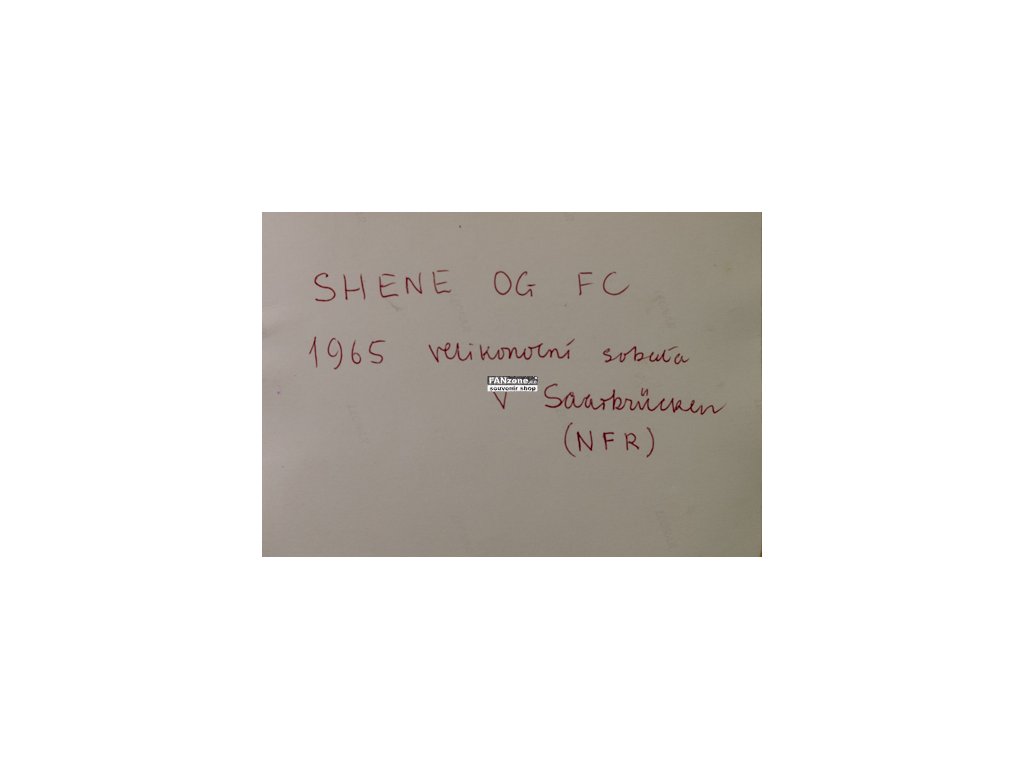 SHENE OG FC
1965 velikonoční sobota
FANzone.cz
souvenir shop
v Saarbrücken
(NFR)